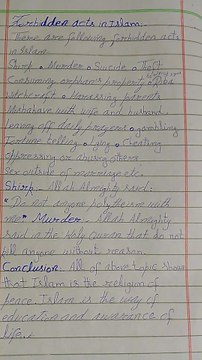 Forbidden acts in Islam:-
There are following forbidden acts
in Islam
Shirk • Murder • Suicide • Theft
Consuming orphan's property • Riba
witchcraft • Harassing parents
Misbehave with wife and husband
leaving off daily prayers • gambling
Fortune telling • Lying • Cheating
oppressing or abusing others
Sex outside of marriage etc.
Shirk:- Allah Almighty said:
"Do not anyone polytheism with
me • Murder:- Allah Almighty
said in the Holy Quran that do not
kill anyone without reason.
Conclusion: All of above topic shows
that Islam is the religion of
peace. Islam is the way of
education and awareness of
life.